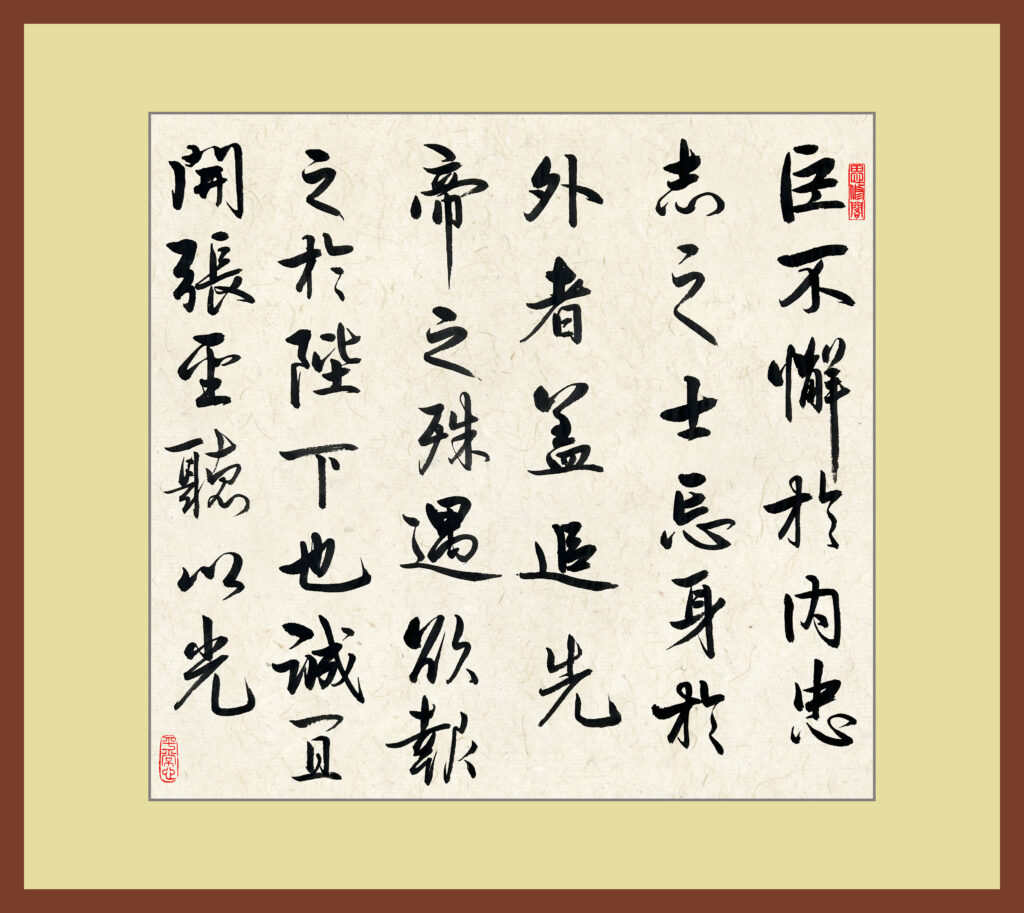 思修閣
臣不懈於内忠
志之士忘身於
外者盖追先
帝之殊遇欲報
之於陛下也誠宜
開張聖聽以光
平常心